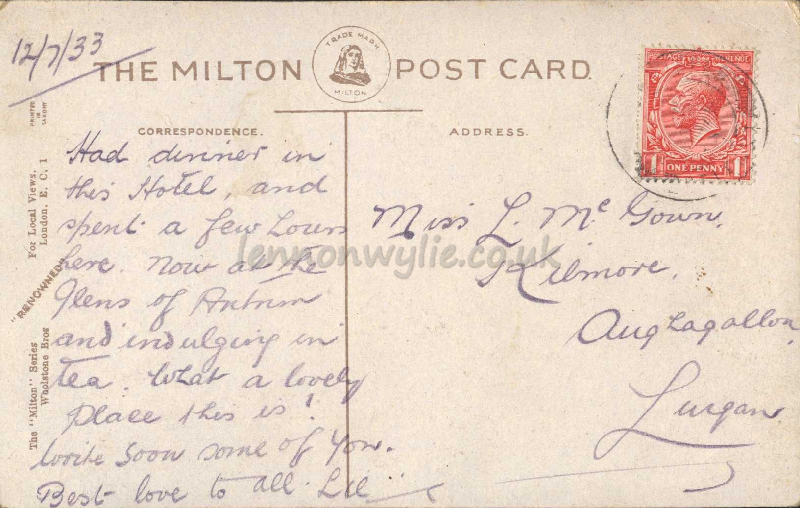 12/7/33
THE MILTON POST CARD.
TRADE MARK
MILTON
PRINTED IN CARDIFF
CORRESPONDENCE.
ADDRESS.
Had dinner in
this Hotel, and
spent a few hours
here. Now at the
Glens of Antrim
and indulging in
tea. What a lovely
place this is!
Write soon some of you.
Best love to all. Lil
Miss L. McGown,
Kilmore,
Aughagallon,
Lurgan
ONE PENNY
1 1
For Local Views.
London, E. C. 1
"RENOWNED"
The "Milton" Series
Wholstone Bros
lennonwylie.co.uk